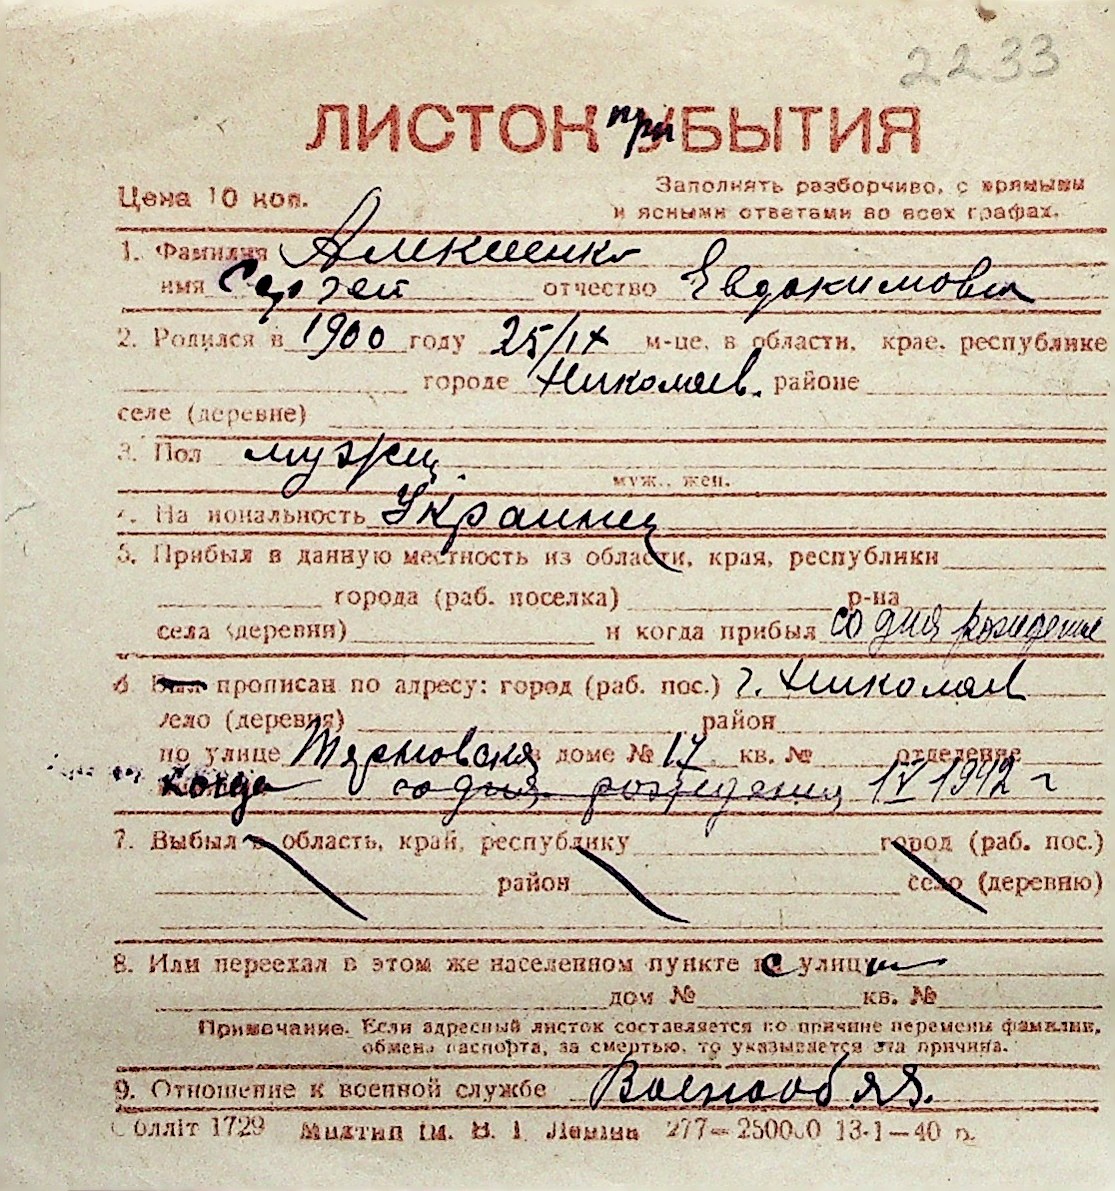 2233
ЛИСТОК при УБЫТИЯ
Цена 10 коп.
Заполнять разборчиво, с прямыми
и ясными ответами во всех графах.
1. Фамилия Алексеенко
имя Сергей отчество Евдокимович
2. Родился в 1900 году 25/IX м-це, в области, крае, республике
городе Николаев. районе
селе (деревне)
3. Пол мужч.
муж., жен.
4. На иональность Украинец
5. Прибыл в данную местность из области, края, республики
города (раб. поселка) р-на
села (деревни) и когда прибыл со дня рождения
6 Был прописан по адресу: город (раб. пос.) г. Николаев
село (деревня) район
по улице в доме № 17 кв. № отделение
когда со дня рождения IV 1942 г
7. Выбыл в область, край, республику город (раб. пос.)
район село (деревню)
8. Или переехал в этом же населенном пункте с улицы
дом № кв. №
Примечание. Если адресный листок составляется по причине перемены фамилии,
обмена паспорта, за смертью, то указывается эта причина.
9. Отношение к военной службе Военнообяз.
Обллiт 1729 Миктип iм. В. I. Ленiна 277—250000 13-1—40 р.